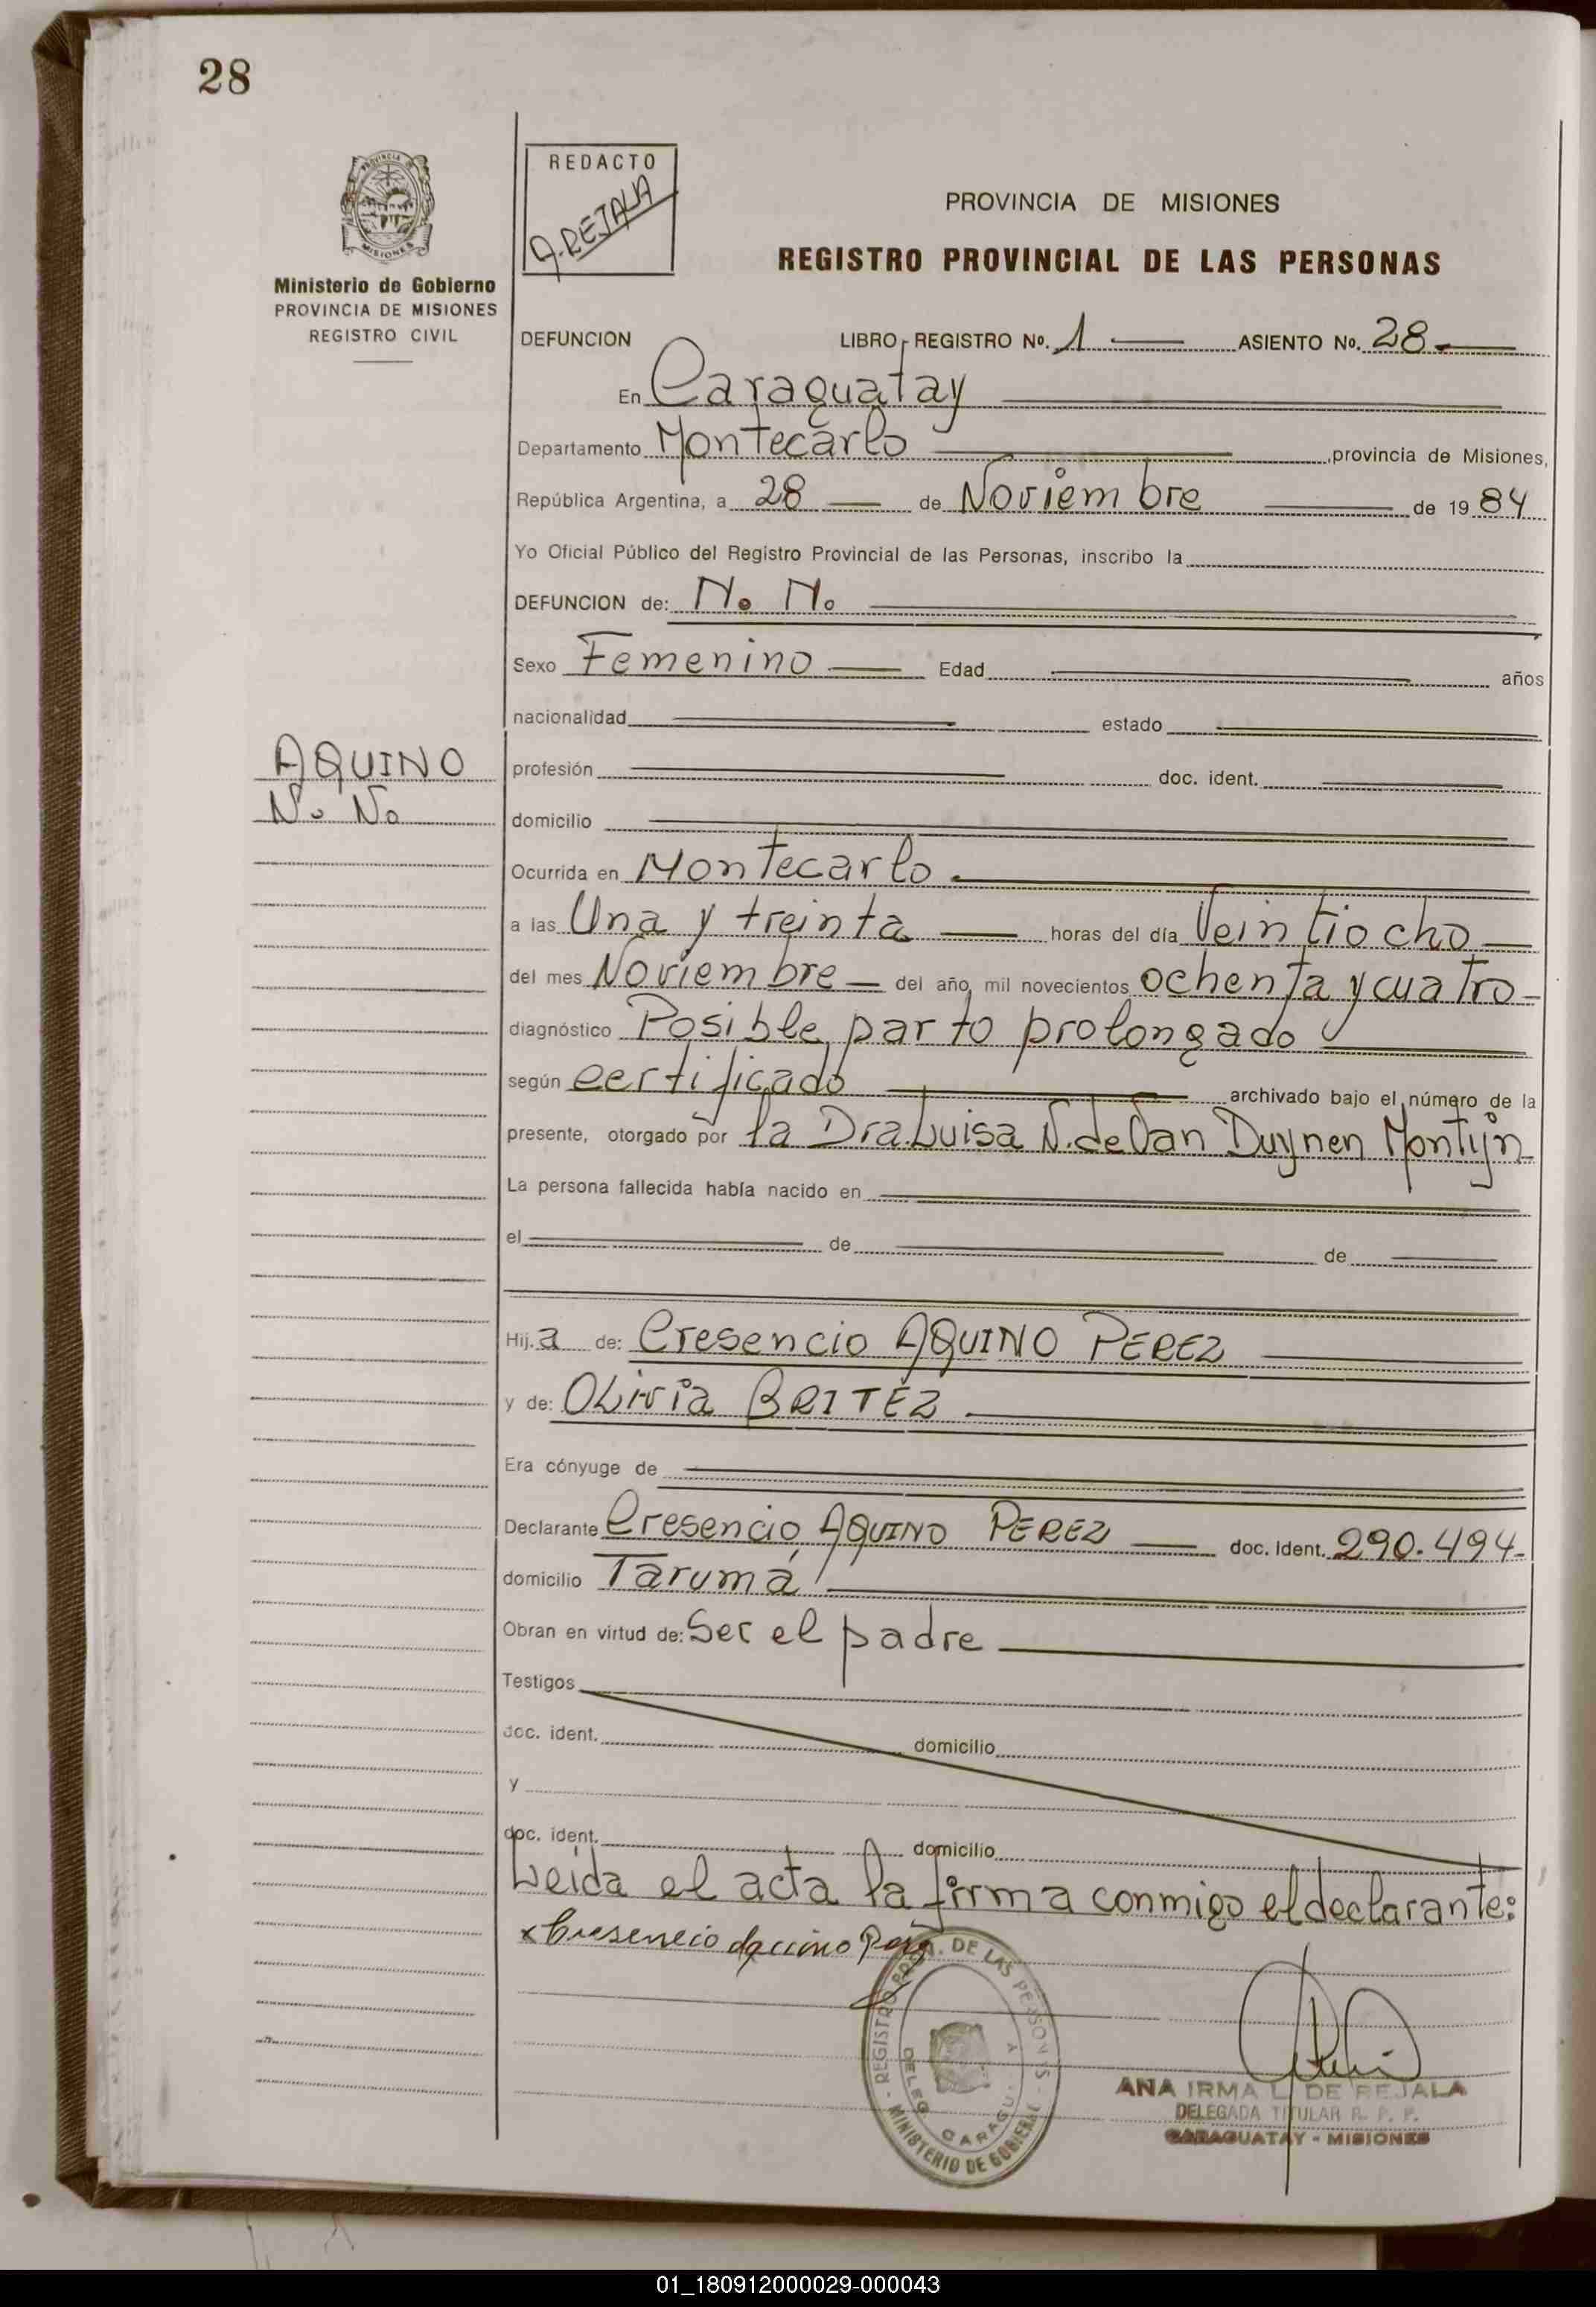 28
PROVINCIA DE
MISIONES
Ministerio de Gobierno
PROVINCIA DE MISIONES
REGISTRO CIVIL
REDACTO
A. REJALA
PROVINCIA DE MISIONES
REGISTRO PROVINCIAL DE LAS PERSONAS
DEFUNCION LIBRO - REGISTRO No. 1 ASIENTO No. 28
En Caraguatay
Departamento Montecarlo provincia de Misiones,
República Argentina, a 28 de Noviembre de 1984
Yo Oficial Público del Registro Provincial de las Personas, inscribo la
DEFUNCION de: N. N.
Sexo Femenino Edad años
nacionalidad estado
AQUINO
N. No
profesión doc. ident.
domicilio
Ocurrida en Montecarlo
a las Una y treinta horas del día Veintiocho
del mes Noviembre del año mil novecientos ochenta y cuatro
diagnóstico Posible parto prolongado
según certificado archivado bajo el número de la
presente, otorgado por la Dra. Luisa N. de Van Duynen Montijn
La persona fallecida había nacido en
el de de
Hij.a de: Cresencio AQUINO PEREZ
y de: OLivia BRITEZ
Era cónyuge de
Declarante Cresencio AQUINO PEREZ doc. Ident. 290.494.
domicilio Tarumá
Obran en virtud de: Ser el padre
Testigos
doc. ident. domicilio
y
doc. ident. domicilio
Leída el acta la firma conmigo el declarante:
x Cresencio Aquino
REGISTRO PROV. DE LAS PERSONAS - MINISTERIO DE GOBIERNO -
DELEG. CARAGU
ANA IRMA L. DE REJALA
DELEGADA TITULAR R. P. P.
CARAGUATAY - MISIONES
01_180912000029-000043